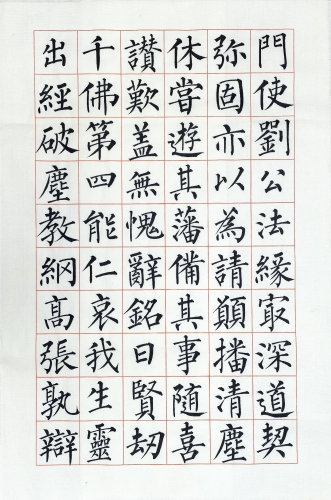 門使劉公法緣㝡深道契
弥固亦以為請願播清塵
休嘗遊其藩備其事隨喜
讚歎盖無愧辭銘曰賢劫
千佛第四能仁哀我生靈
出經破塵教綱高張孰辯